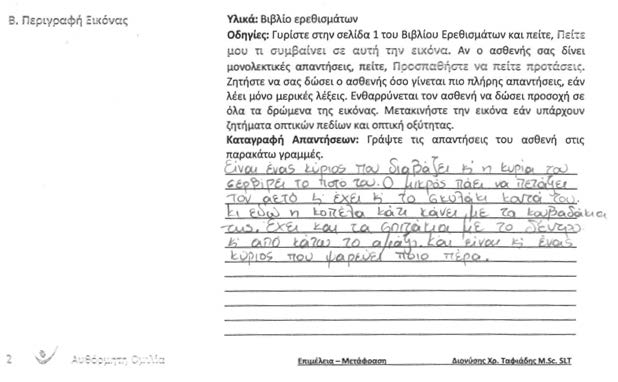 Β. Περιγραφή Εικόνας
Υλικά: Βιβλίο ερεθισμάτων
Οδηγίες: Γυρίστε στην σελίδα 1 του Βιβλίου Ερεθισμάτων και πείτε, Πείτε
μου τι συμβαίνει σε αυτή την εικόνα. Αν ο ασθενής σας δίνει
μονολεκτικές απαντήσεις, πείτε, Προσπαθήστε να πείτε προτάσεις.
Ζητήστε να σας δώσει ο ασθενής όσο γίνεται πιο πλήρης απαντήσεις, εάν
λέει μόνο μερικές λέξεις. Ενθαρρύνεται τον ασθενή να δώσει προσοχή σε
όλα τα δρώμενα της εικόνας. Μετακινήστε την εικόνα εάν υπάρχουν
ζητήματα οπτικών πεδίων και οπτική οξύτητας.
Καταγραφή Απαντήσεων: Γράψτε τις απαντήσεις του ασθενή στις
παρακάτω γραμμές.
Είναι ένας κύριος που διαβάζει κ η κυρία του
σερβίρει το ποτο του. Ο μικρός πάει να πετάξει
τον αετό κ έχει κ το σκυλάκι κοντά του.
κι εδώ η κοπέλα κάτι κάνει με τα κουβαδάκια
της. Έχει και τα σπιτάκια με το δέντρο
κ από κάτω το αμάξι. Και είναι κ ένας
κύριος που ψαρεύει ποιο πέρα.
2 Αυθόρμητη Ομιλία Επιμέλεια – Μετάφραση Διονύσης Χρ. Ταφιάδης M.Sc. SLT